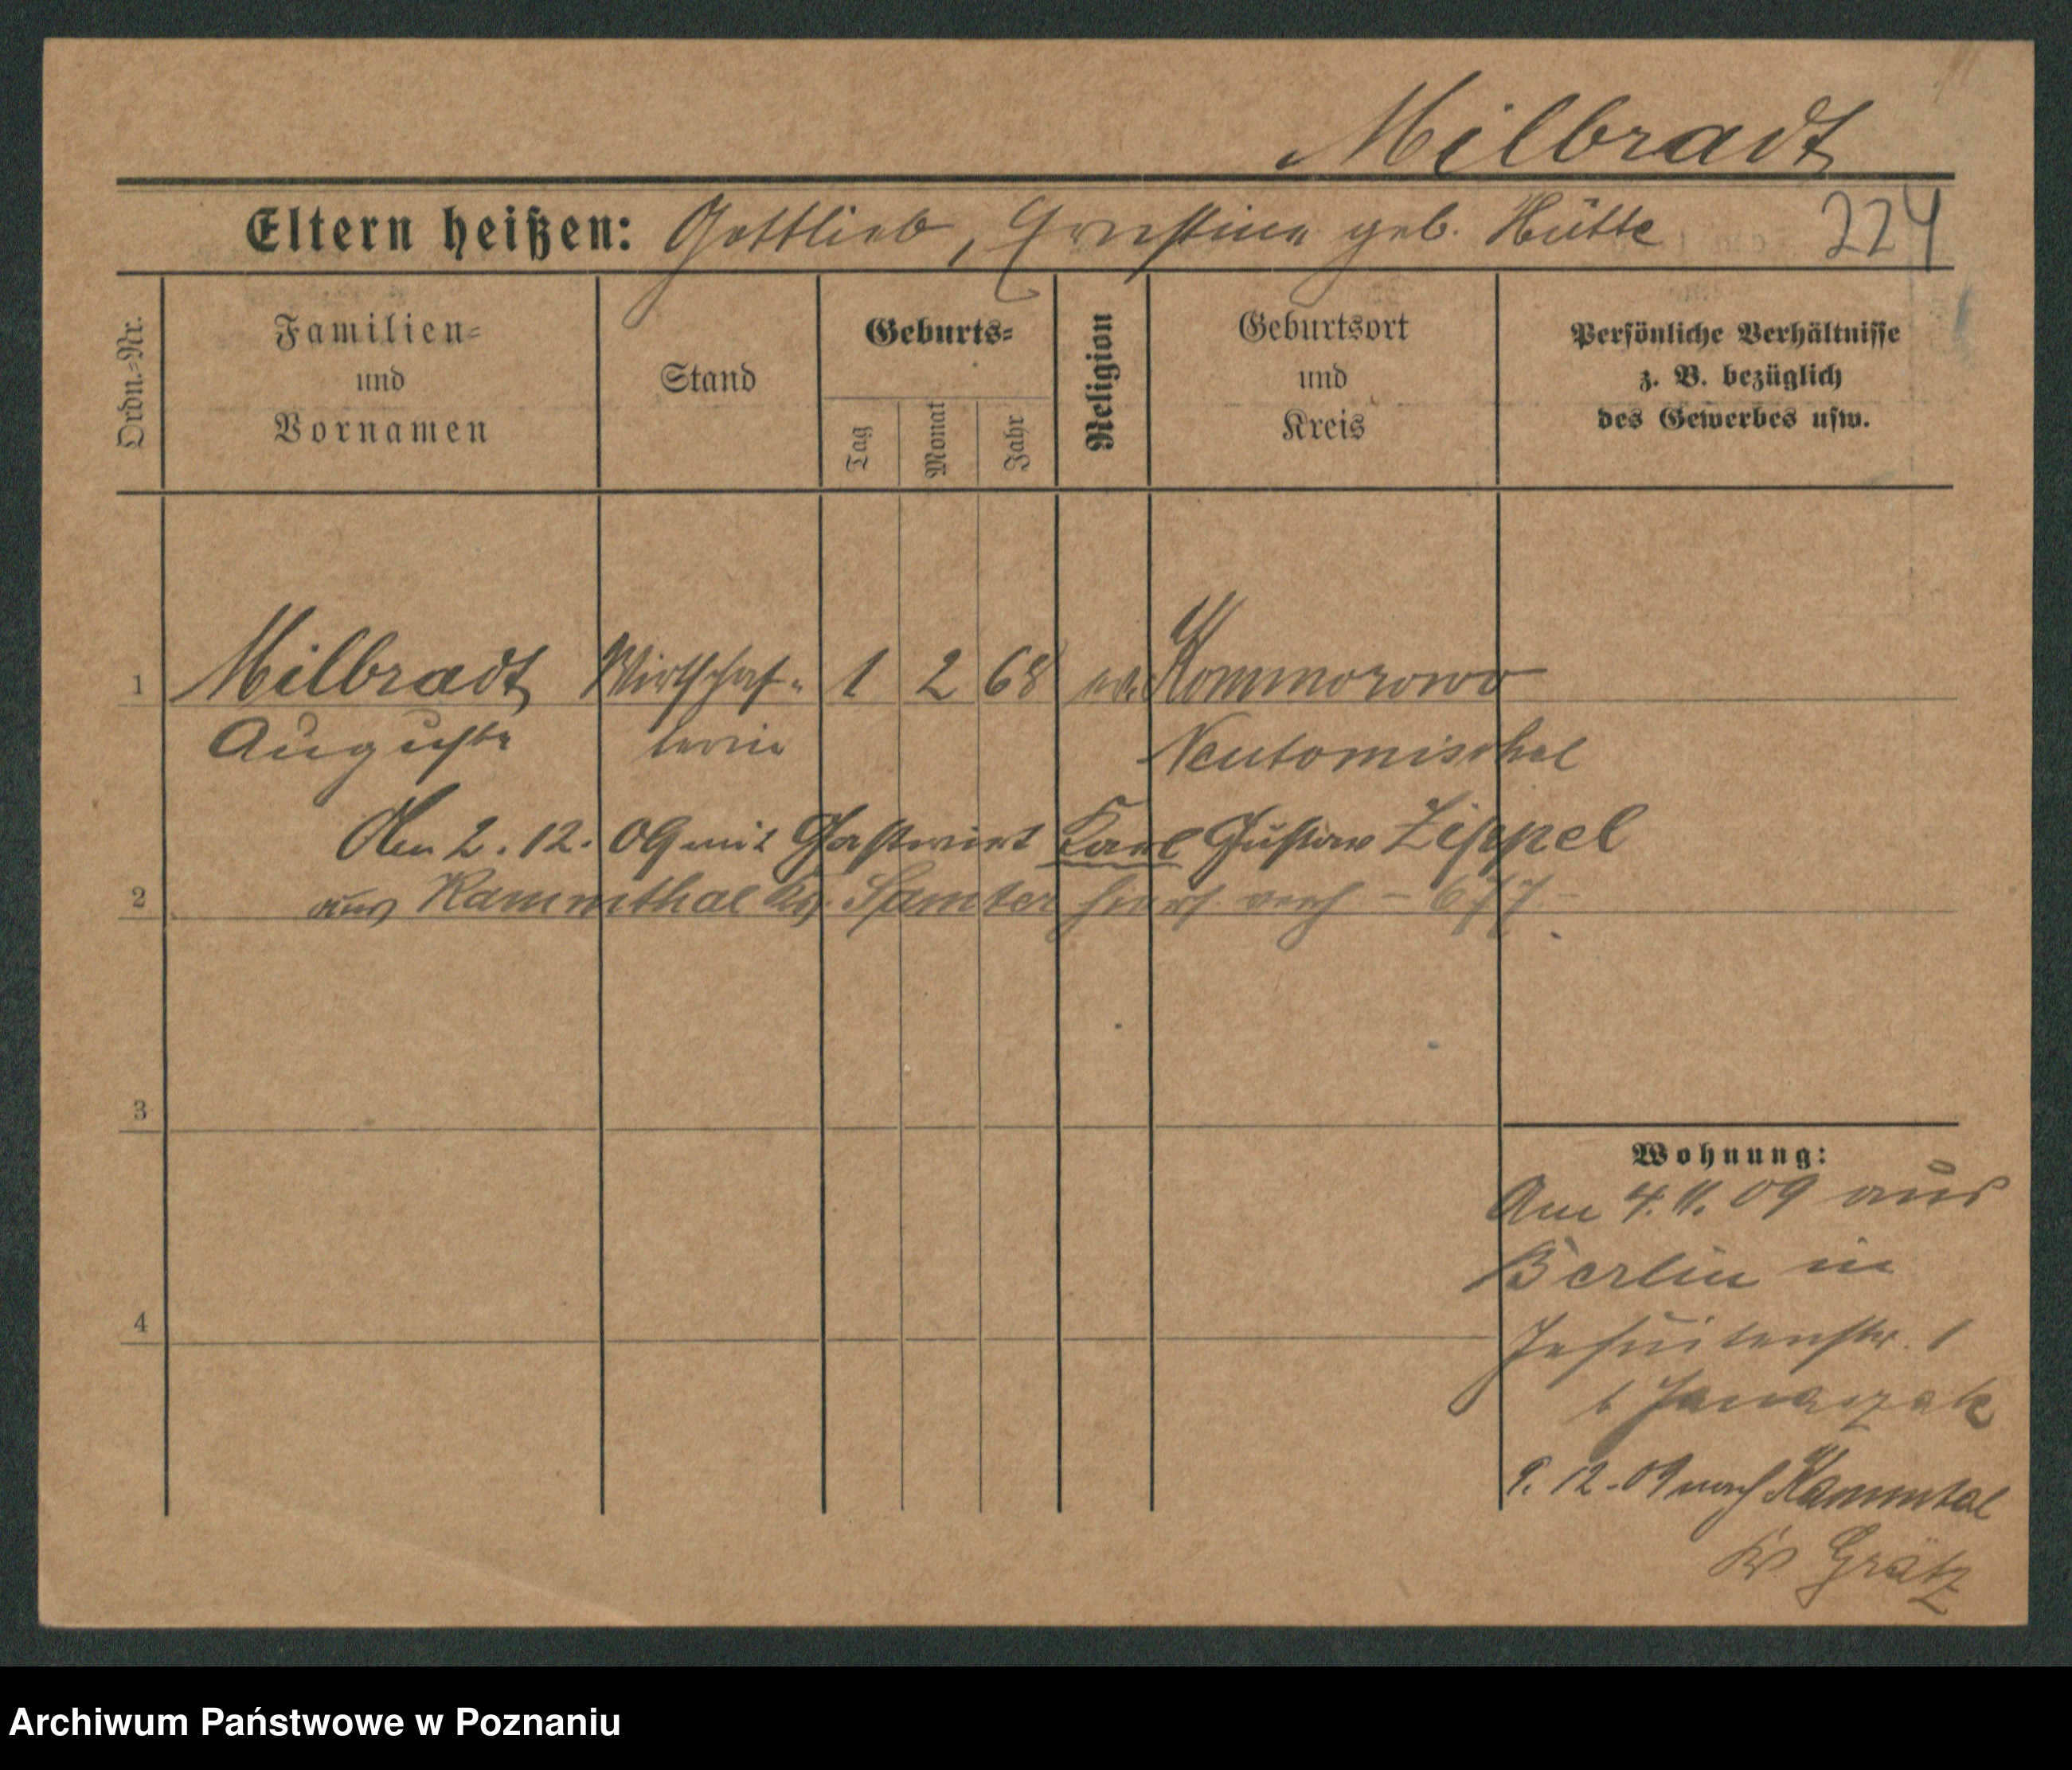 Milbradt
Eltern heißen: Gottlieb, Ernestine geb. Hütte 224
Ordn.-Nr.
Familien-
und
Vornamen
Stand
Geburts-
Tag
Monat
Jahr
Religion
Geburtsort
und
Kreis
Persönliche Verhältnisse
z. B. bezüglich
des Gewerbes usw.
1 Milbradt Wirtschaf- 1 2 68 ev. Kommorowo
Auguste terin Neutomischel
Am 2. 12. 09 mit Gastwirt Karl Gustav Zippel
2 aus Kammthal Kr. Samter hier verh - 677 -
3
Wohnung:
Am 4. 11. 09 aus
Berlin in
4
Jesuitenstr. 1
b Janaszak
9. 12. 09 nach Kammtal
Kr Grätz
Archiwum Państwowe w Poznaniu